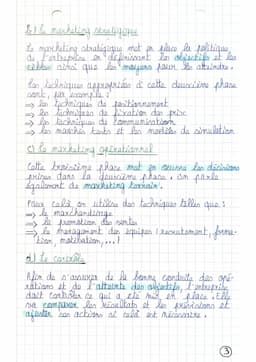 b) Le marketing stratégique
Le marketing stratégique met en place la politique
de l'entreprise en définissant les objectifs et les
cibles ainsi que les moyens pour les atteindre.
Les techniques appropriées à cette deuxième phase
sont, par exemple :
⇒ les techniques de positionnement
⇒ les techniques de fixation des prix
⇒ les techniques de communication
⇒ les marchés tests et les modèles de simulation
c) Le marketing opérationnel
Cette troisième phase met en oeuvre les décisions
prises dans la deuxième phase. On parle
également de marketing terrain.
Pour cela, on utilise des techniques telles que :
⇒ le marchandisage
⇒ la promotion des ventes
⇒ le management des équipes (recrutement, forma-
tion, motivation, ... )
d) Le contrôle
Afin de s'assurer de la bonne conduite des opé-
rations et de l'atteinte des objectifs, l'entreprise
doit contrôler ce qui a été mis en place. Elle
va comparer les résultats et les prévisions et
ajuster ses actions si cela est nécessaire.
3